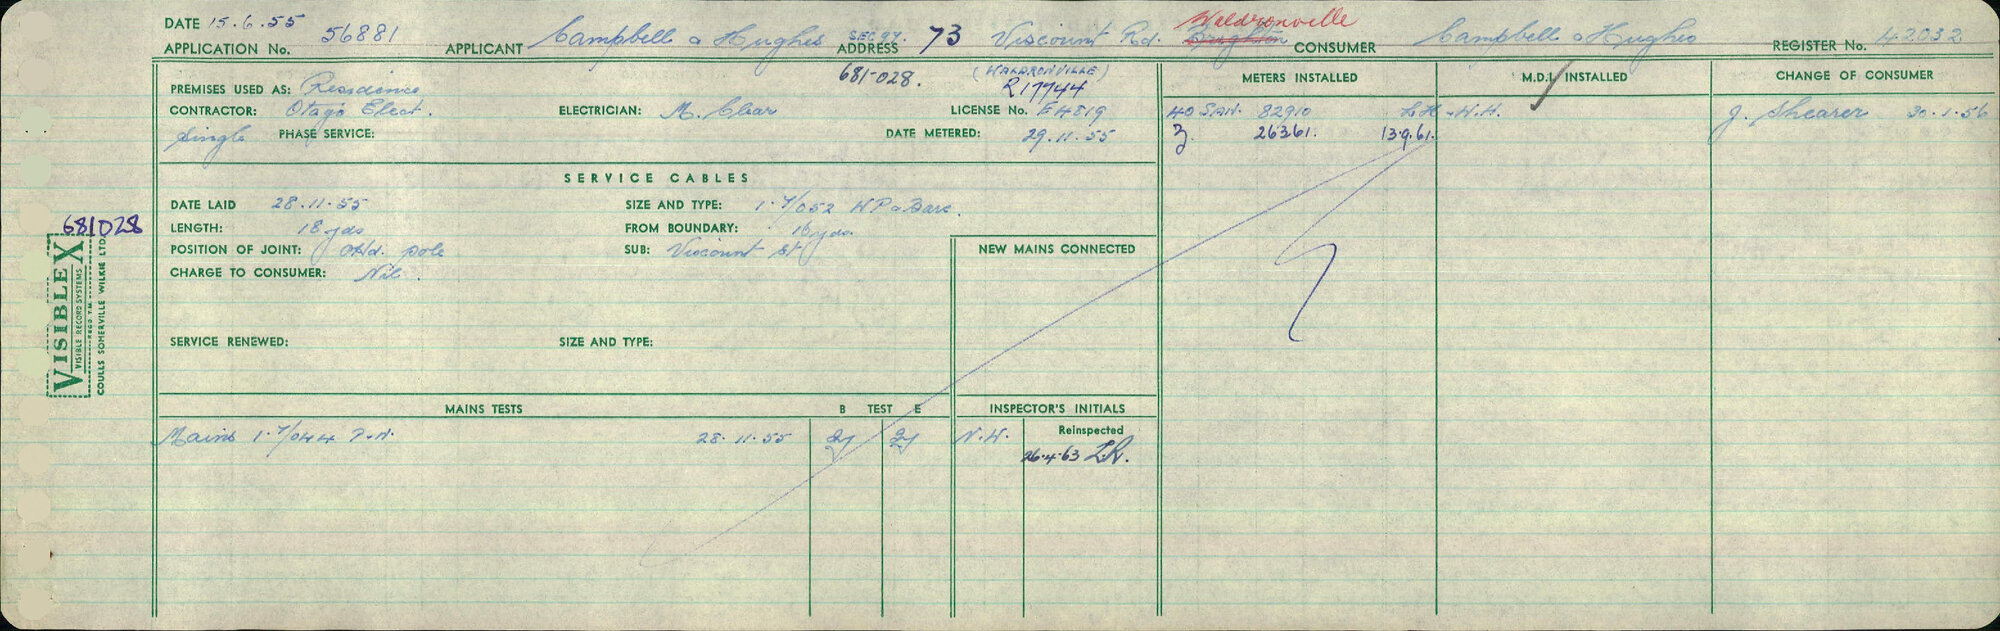 DATE 15.6.55
APPLICATION No. 56881 APPLICANT Campbell & Hughes SEC 97. ADDRESS 73 Viscount Rd. Brighton Waldronville CONSUMER Campbell & Hughes REGISTER No. 42032
681-028. (WALDRONVILLE)
PREMISES USED AS: Residence R17744
CONTRACTOR: Otago Elect. ELECTRICIAN: M. Clear LICENSE No. E4819
Single PHASE SERVICE: DATE METERED: 29.11.55
METERS INSTALLED M.D.I. INSTALLED CHANGE OF CONSUMER
40 SAN. 82910 L.H. - W.H. J. Shearer 30.1.56
26361. 13.9.61.
SERVICE CABLES
DATE LAID 28.11.55 SIZE AND TYPE: 1-7/052 HP & Bare.
LENGTH: 18 yds FROM BOUNDARY: 16 yds
POSITION OF JOINT: O/Hd. pole SUB: Viscount St
CHARGE TO CONSUMER: Nil.
NEW MAINS CONNECTED
SERVICE RENEWED: SIZE AND TYPE:
MAINS TESTS B TEST E INSPECTOR'S INITIALS
Mains 1-7/044 28.11.55 N.H. Reinspected
26.4.63 L.R.
681028
VISIBLEX
VISIBLE RECORD SYSTEMS
REGD T.M.
COULLS SOMERVILLE WILKIE LTD